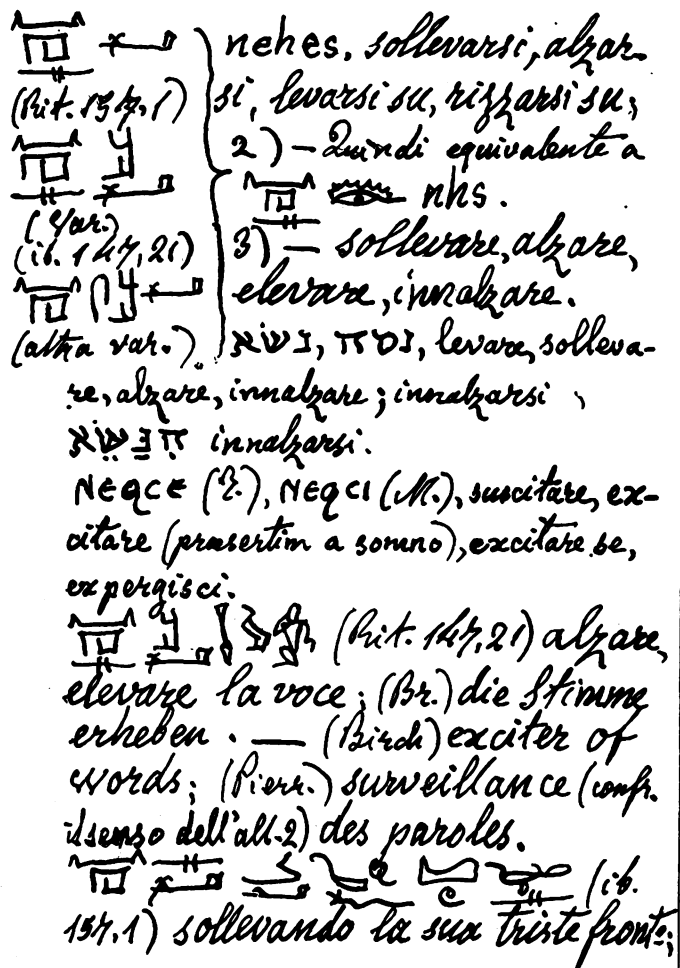 nehes, sollevarsi, alzar-
(Rit. 157,1) si, levarsi su, rizzarsi su;
2) — Quindi equivalente a
nhs.
(Var.)
(ib. 147,21) 3) — sollevare, alzare,
elevare, innalzare.
(altra var.) נשׂא, נסה, levare, solleva-
re, alzare, innalzare; innalzarsi
הִנַּשֵּׂא innalzarsi.
ⲛⲉϩⲥⲉ (T.), ⲛⲉϩⲥⲓ (M.), suscitare, ex-
citare (præsertim a somno), excitare se,
expergisci.
(Rit. 147,21) alzare,
elevare la voce; (Br.) die Stimme
erheben. — (Birch) exciter of
words; (Pierr.) surveillance (confr.
il senso dell'all-2) des paroles.
(ib.
157,1) sollevando la sua triste fronte;